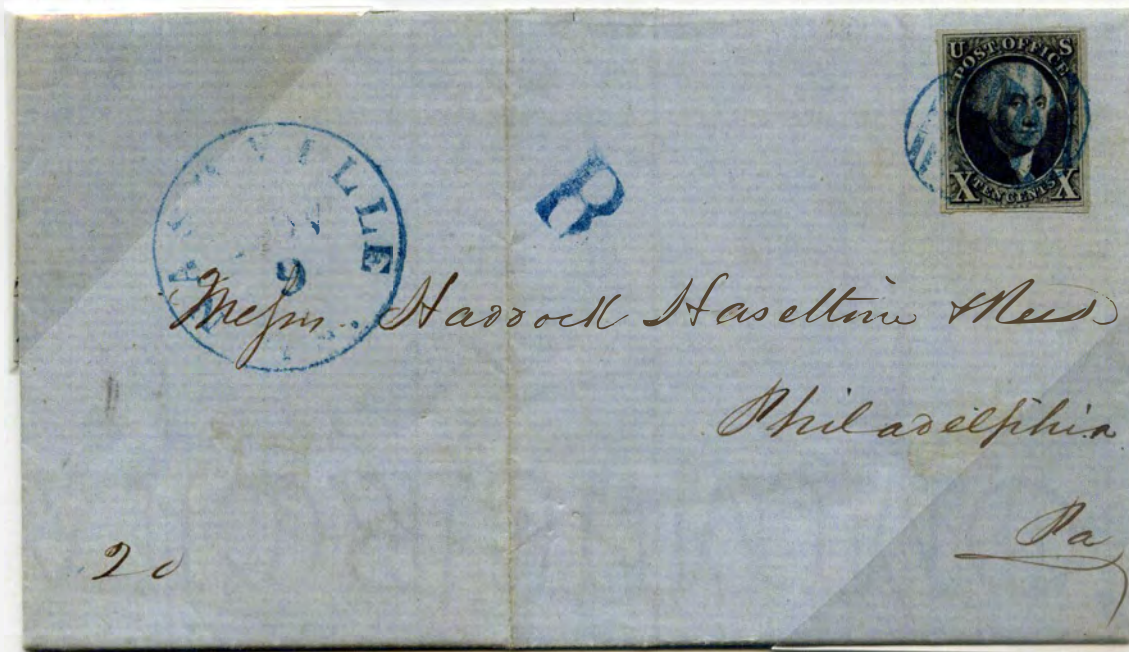 U S
POST OFFICE
X TEN CENTS X
NASHVILLE
9
B
Messrs. Haddock Haseltine & Reed
Philadelphia
Pa
20